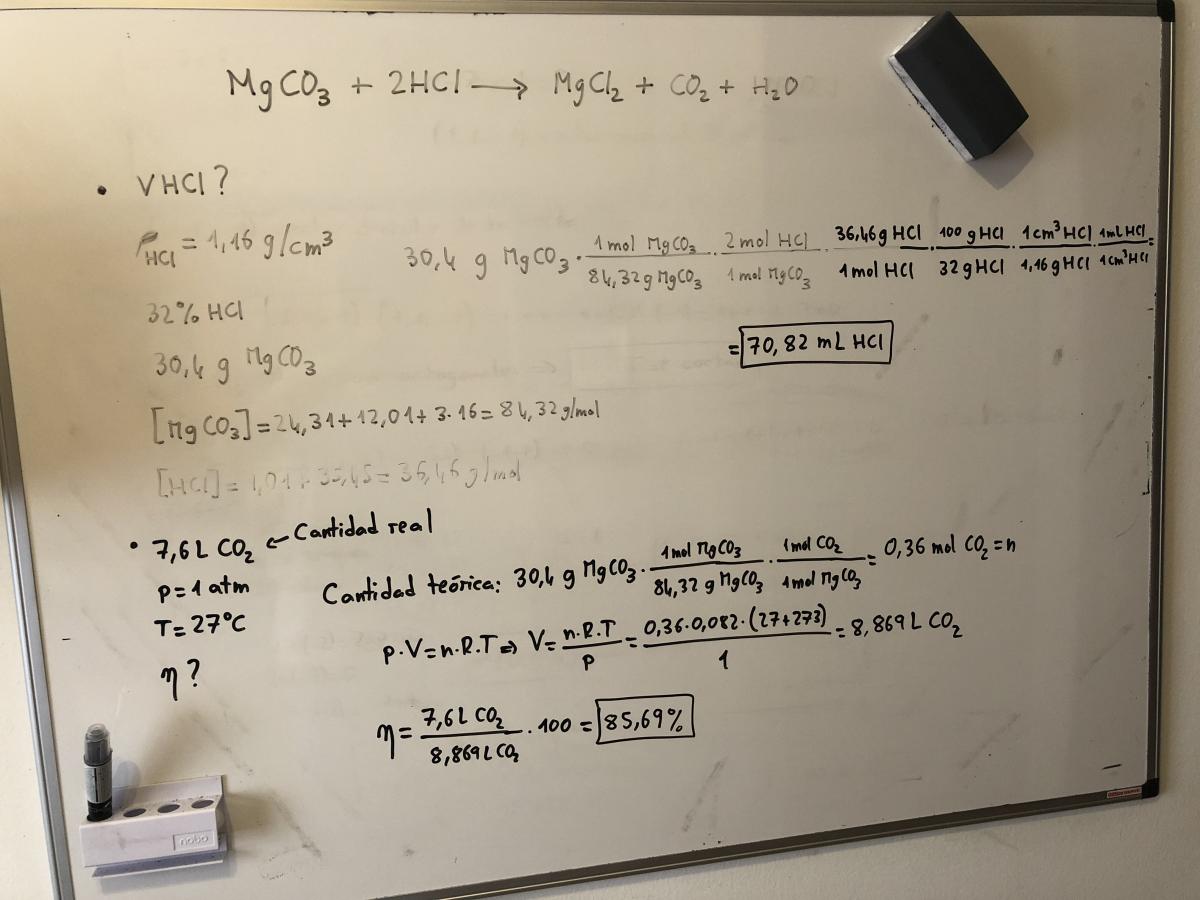 MgCO₃ + 2HCl → MgCl₂ + CO₂ + H₂O
• VHCl?
ρHCl = 1,16 g/cm³
30,4 g MgCO₃ · 1 mol MgCO₃/84,32 g MgCO₃ · 2 mol HCl/1 mol MgCO₃ · 36,46 g HCl/1 mol HCl · 100 g HCl/32 g HCl · 1 cm³ HCl/1,16 g HCl · 1 mL HCl/1 cm³ HCl =
32% HCl
= 70,82 mL HCl
30,4 g MgCO₃
[MgCO₃] = 24,31 + 12,01 + 3·16 = 84,32 g/mol
[HCl] = 1,01 + 35,45 = 36,46 g/mol
• 7,6 L CO₂ ← Cantidad real
p = 1 atm
T = 27°C
η?
Cantidad teórica: 30,4 g MgCO₃ · 1 mol MgCO₃/84,32 g MgCO₃ · 1 mol CO₂/1 mol MgCO₃ = 0,36 mol CO₂ = n
p·V = n·R·T ⇒ V = n·R·T/p = 0,36·0,082·(27+273)/1 = 8,869 L CO₂
η = 7,6 L CO₂/8,869 L CO₂ · 100 = 85,69%
nobo